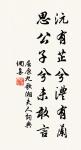 沅有芷兮澧有蘭
思公子兮未敢言
屈原九歌湘夫人詞典